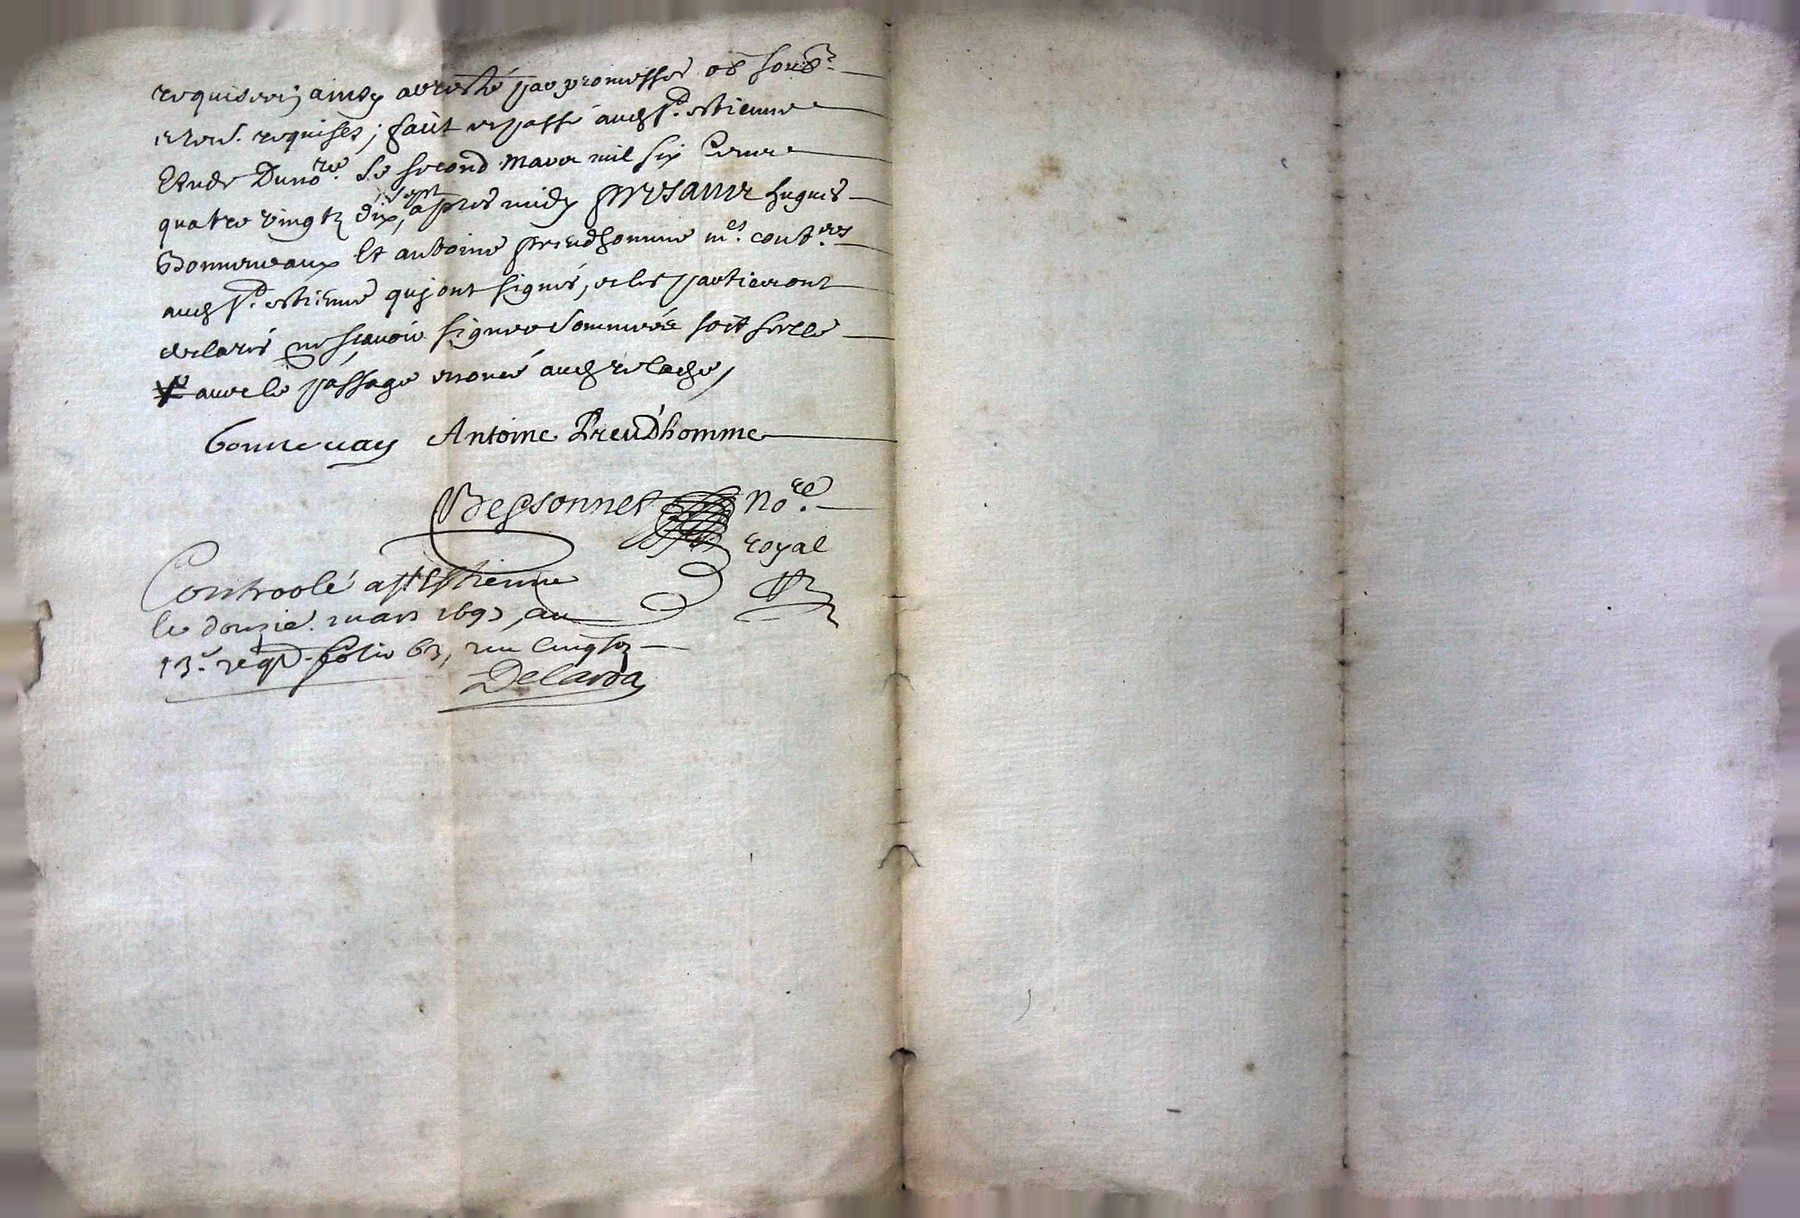 requiser; ainsy arresté par promesses ob. soub.
et ren. requises; fait et passé aud. St. estienne
Etude Du nore. Le second mars mil six Cent
quatre vingtz dix sept apres midy presantz hugues
Bonneveaux Et antoine preudhomme mes. cout.ers
aud. St. estienne quj ont signés, et les parties ont
declaré ne sçavoir signer sommées soit scellé
avec le passage enoncé aud. relache,
bonnevay Antoine Preud'homme
Bessonnet No.re
royal
Controolé a St Estienne
le douzie. mars 1697, au
13.e reg. folio 63, receu cinq sol
Delaroa